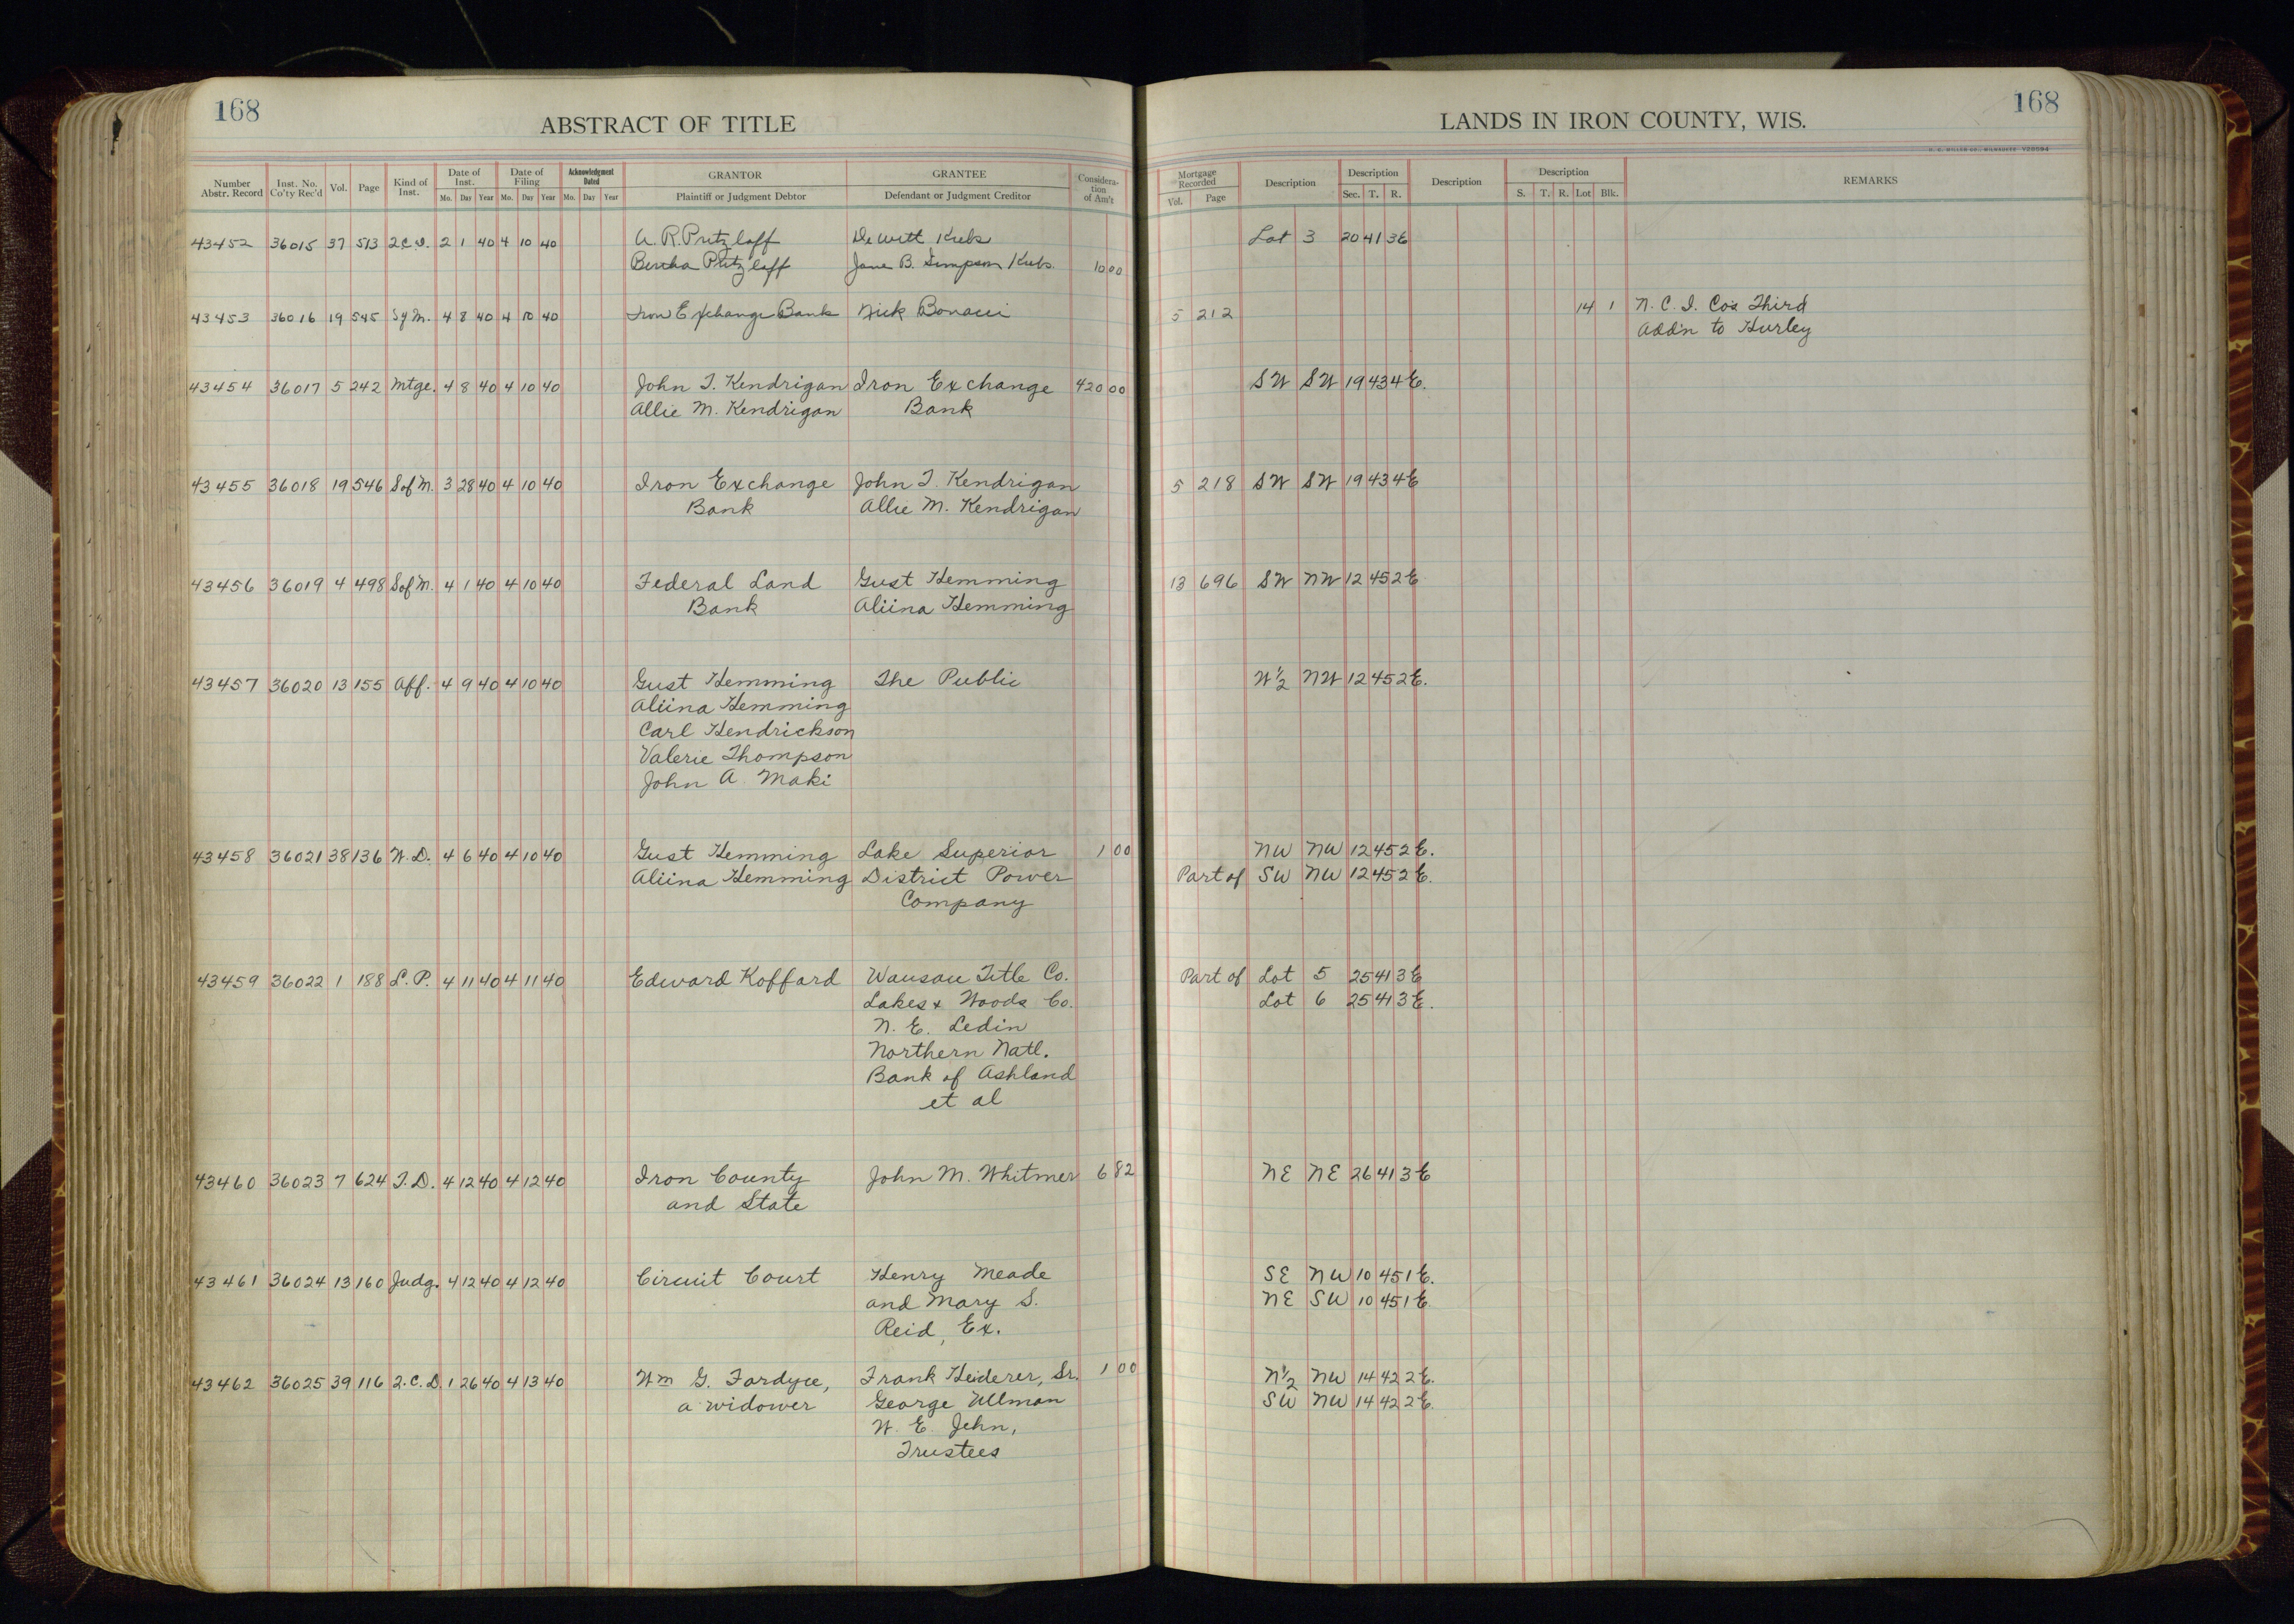 168
ABSTRACT OF TITLE
LANDS IN IRON COUNTY, WIS.
168
H. C. MILLER CO., MILWAUKEE V28594
Number Abstr. Record Inst. No. Co'ty Rec'd Vol. Page Kind of Inst. Date of Inst. Mo. Day Year Date of Filing Mo. Day Year Acknowledgment Dated Mo. Day Year GRANTOR Plaintiff or Judgment Debtor GRANTEE Defendant or Judgment Creditor Consideration of Am't Mortgage Recorded Vol. Page Description Description Sec. T. R. Description Description S. T. R. Lot Blk. REMARKS
43452 36015 37 513 2.C.D. 2 1 40 4 10 40 A. R. Pritzlaff DeWitt Krebs Lot 3 20 41 3E
Bertha Pritzlaff Jane B. Simpson Krebs 10 00
43453 36016 19 545 Sof M. 4 8 40 4 10 40 Iron Exchange Bank Nick Bonacci 5 212 14 1 N. C. I. Co's Third
Add'n to Hurley
43454 36017 5 242 Mtge. 4 8 40 4 10 40 John T. Kendrigan Iron Exchange 420 00 SW SW 19 43 4E.
Allie M. Kendrigan Bank
43455 36018 19 546 Sof M. 3 28 40 4 10 40 Iron Exchange John T. Kendrigan 5 218 SW SW 19 43 4E
Bank Allie M. Kendrigan
43456 36019 4 498 Sof M. 4 1 40 4 10 40 Federal Land Gust Hemming 13 696 SW NW 12 45 2E
Bank Aliina Hemming
43457 36020 13 155 Aff. 4 9 40 4 10 40 Gust Hemming The Public W½ NW 12 45 2E.
Aliina Hemming
Carl Hendrickson
Valerie Thompson
John A. Maki
43458 36021 38 136 W.D. 4 6 40 4 10 40 Gust Hemming Lake Superior 1 00 NW NW 12 45 2E.
Aliina Hemming District Power Part of SW NW 12 45 2E.
Company
43459 36022 1 188 L.P. 4 11 40 4 11 40 Edward Koffard Wausau Title Co. Part of Lot 5 25 41 3E
Lakes & Woods Co. Lot 6 25 41 3E.
N. E. Ledin
Northern Natl.
Bank of Ashland
et al
43460 36023 7 624 T.D. 4 12 40 4 12 40 Iron County John M. Whitmer 6 82 NE NE 26 41 3E
and State
43461 36024 13 160 Judg. 4 12 40 4 12 40 Circuit Court Henry Meade SE NW 10 45 1E.
and Mary S. NE SW 10 45 1E
Reid, Ex.
43462 36025 39 116 2.C.D. 1 26 40 4 13 40 Wm G. Fordyce, Frank Heiderer, Sr. 1 00 N½ NW 14 42 2E.
a widower George Ullman SW NW 14 42 2E.
W. E. Jehn,
Trustees